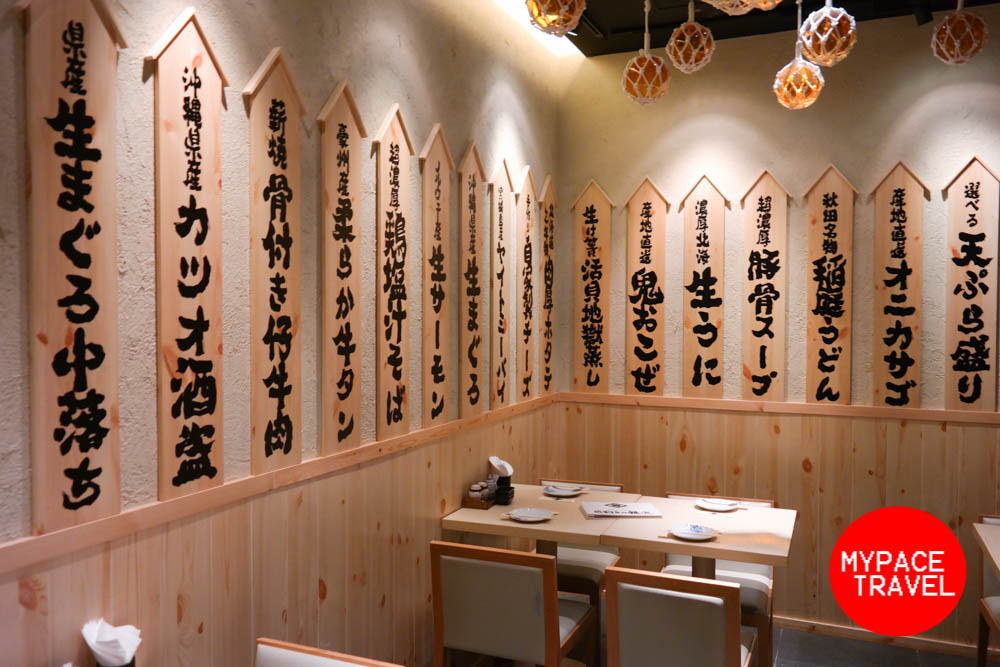 県産 生まぐろ中落ち
沖縄県産 カツオ酒盗
薪焼 骨付き仔牛肉
豪州産 柔らか牛タン
超濃厚 鶏塩汁そば
生サーモン
沖縄県産 生まぐろ
自家製チーズ
肉厚ホタテ
活貝地獄蒸し
産地直送 鬼おこぜ
濃厚北海 生うに
超濃厚 豚骨スープ
秋田名物 稲庭うどん
産地直送 オニカサゴ
選べる 天ぷら盛り
MYPACE
TRAVEL